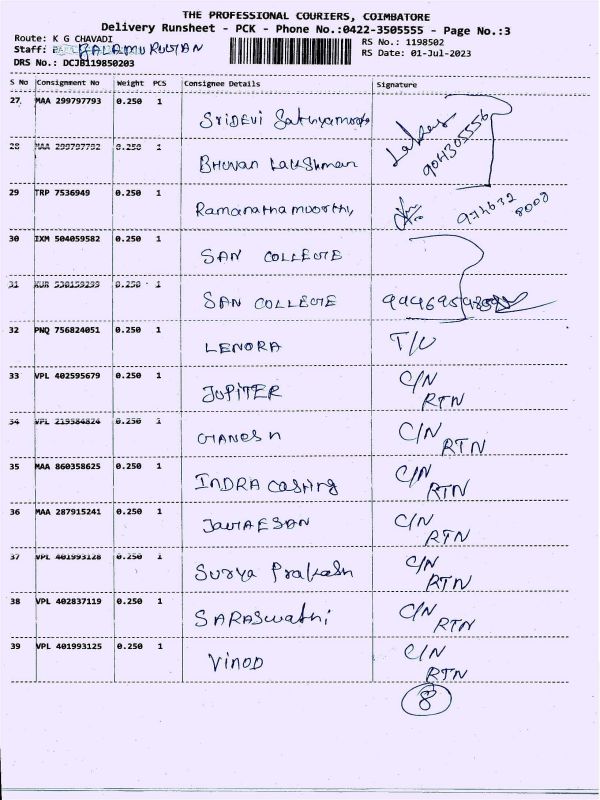 THE PROFESSIONAL COURIERS, COIMBATORE
Delivery Runsheet - PCK - Phone No.:0422-3505555 - Page No.:3
Route: K G CHAVADI
RS No.: 1198502
Staff: BALAMURUGAN
RS Date: 01-Jul-2023
DRS No.: DCJB119850203
S No Consignment No Weight PCS Consignee Details Signature
27 MAA 299797793 0.250 1 SriDEVI Sathyamoorthy
28 MAA 299797792 0.250 1 BHUVAN Lakshman 904305556
29 TRP 7536949 0.250 1 Ramanathamoorthy 974632 8008
30 IXM 504059582 0.250 1 SAN COLLEGE
31 0.250 1 SAN COLLEGE
32 PNQ 756824051 0.250 1 LENORA T/U
33 VPL 402595679 0.250 1 JUPITER C/N RTN
34 VPL 219584824 0.250 1 GANESH C/N RTN
35 MAA 860358625 0.250 1 INDRA Casting C/N RTN
36 MAA 287915241 0.250 1 C/N RTN
37 VPL 401993128 0.250 1 Surya Prakash C/N RTN
38 VPL 402837119 0.250 1 SARASwathi C/N RTN
39 VPL 401993125 0.250 1 VINOD C/N RTN
8